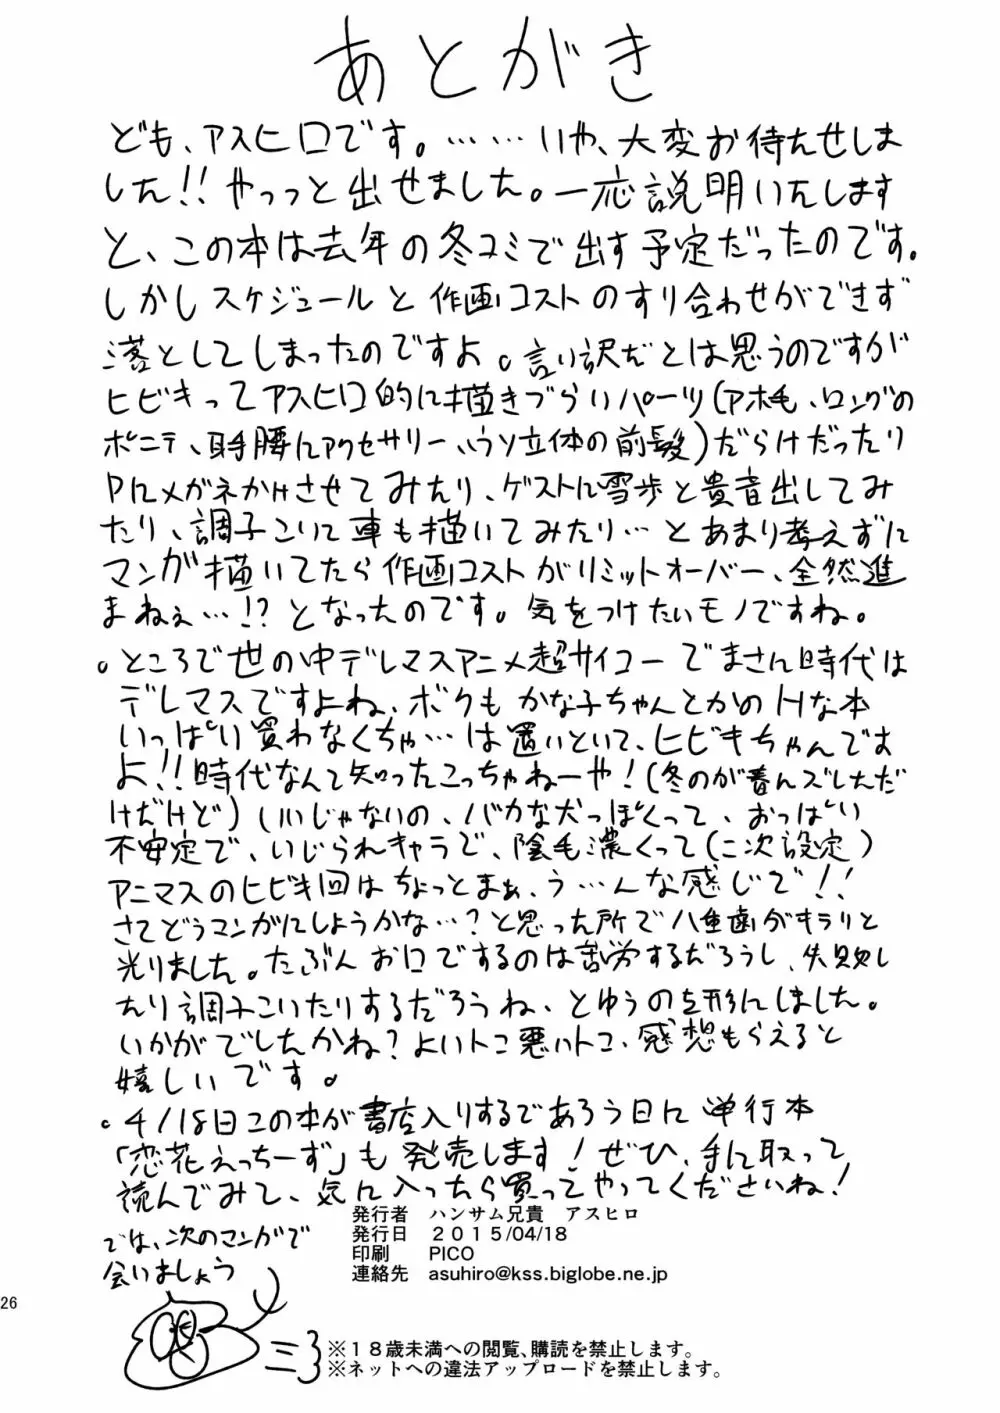 あとがき
ども、アスヒロです。……いや、大変お待たせしま
した!!やっっと出せました。一応説明いたします
と、この本は去年の冬コミで出す予定だったのです。
しかしスケジュールと作画コストのすり合わせができず
落としてしまったのですよ。言い訳だとは思うのですが
ヒビキってアスヒロ的に描きづらいパーツ(アホ毛、ロングの
ポニテ、耳手腰にアクセサリー、ウソ立体の前髪)だらけだったり
Pにメガネかけさせてみたり、ゲストに雪歩と貴音出してみ
たり、調子こいて車も描いてみたり…とあまり考えずに
マンガ描いてたら作画コストがリミットオーバー、全然進
まねぇ…!?となったのです。気をつけたいモノですね。
。ところで世の中デレマスアニメ超サイコーでまさん時代は
デレマスですよね、ボクもかな子ちゃんとかのHな本
いっぱい買わなくちゃ…は置いといて、ヒビキちゃんです
よ!!時代なんて知ったこっちゃねーや!(冬のが春んズレただ
けだけど)いいじゃないの、バカな犬っぽくって、おっぱい
不安定で、いじられキャラで、陰毛濃くって(二次設定)
アニマスのヒビキ回はちょっとまぁ、う…んな感じで!!
さてどうマンガにしようかな…?と思った所で八重歯がキラリと
光りました。たぶんお口でするのは苦労するだろうし、失敗し
たり調子こいたりするだろうね、とゆうのを形にしました。
いかがでしたかね?よいトコ悪いトコ、感想もらえると
嬉しいです。
。4/18日この本が書店入りするであろう日に単行本
「恋花えっちーず」も発売します!ぜひ、手に取って
読んでみて、気に入ったら買ってやってくださいね!
では、次のマンガで
会いましょう
発行者 ハンサム兄貴 アスヒロ
発行日 2015/04/18
印刷 PICO
連絡先 asuhiro@kss.biglobe.ne.jp
26
※18歳未満への閲覧、購読を禁止します。
※ネットへの違法アップロードを禁止します。